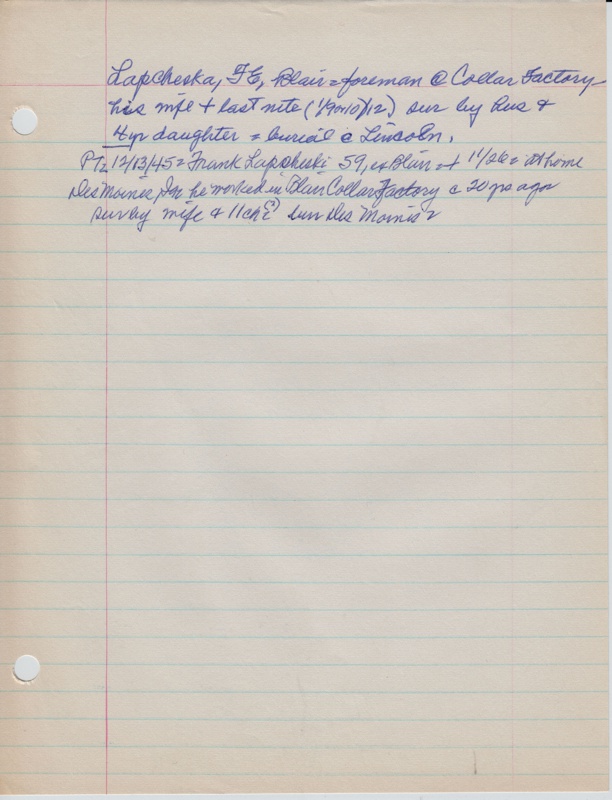 Lapcheska, F E, Blair = foreman @ Collar Factory
his wife + last nite (1/9 or 10/12) sur by hus &
4 yr daughter = burial @ Lincoln.
PT= 12/13/45 = Frank Lapcheski 59, ex Blair + 11/26 = at home
Des Moines, Ia he worked in Blair Collar Factory c 20 yrs ago
sur by wife & 1 ch (?) bur Des Moines